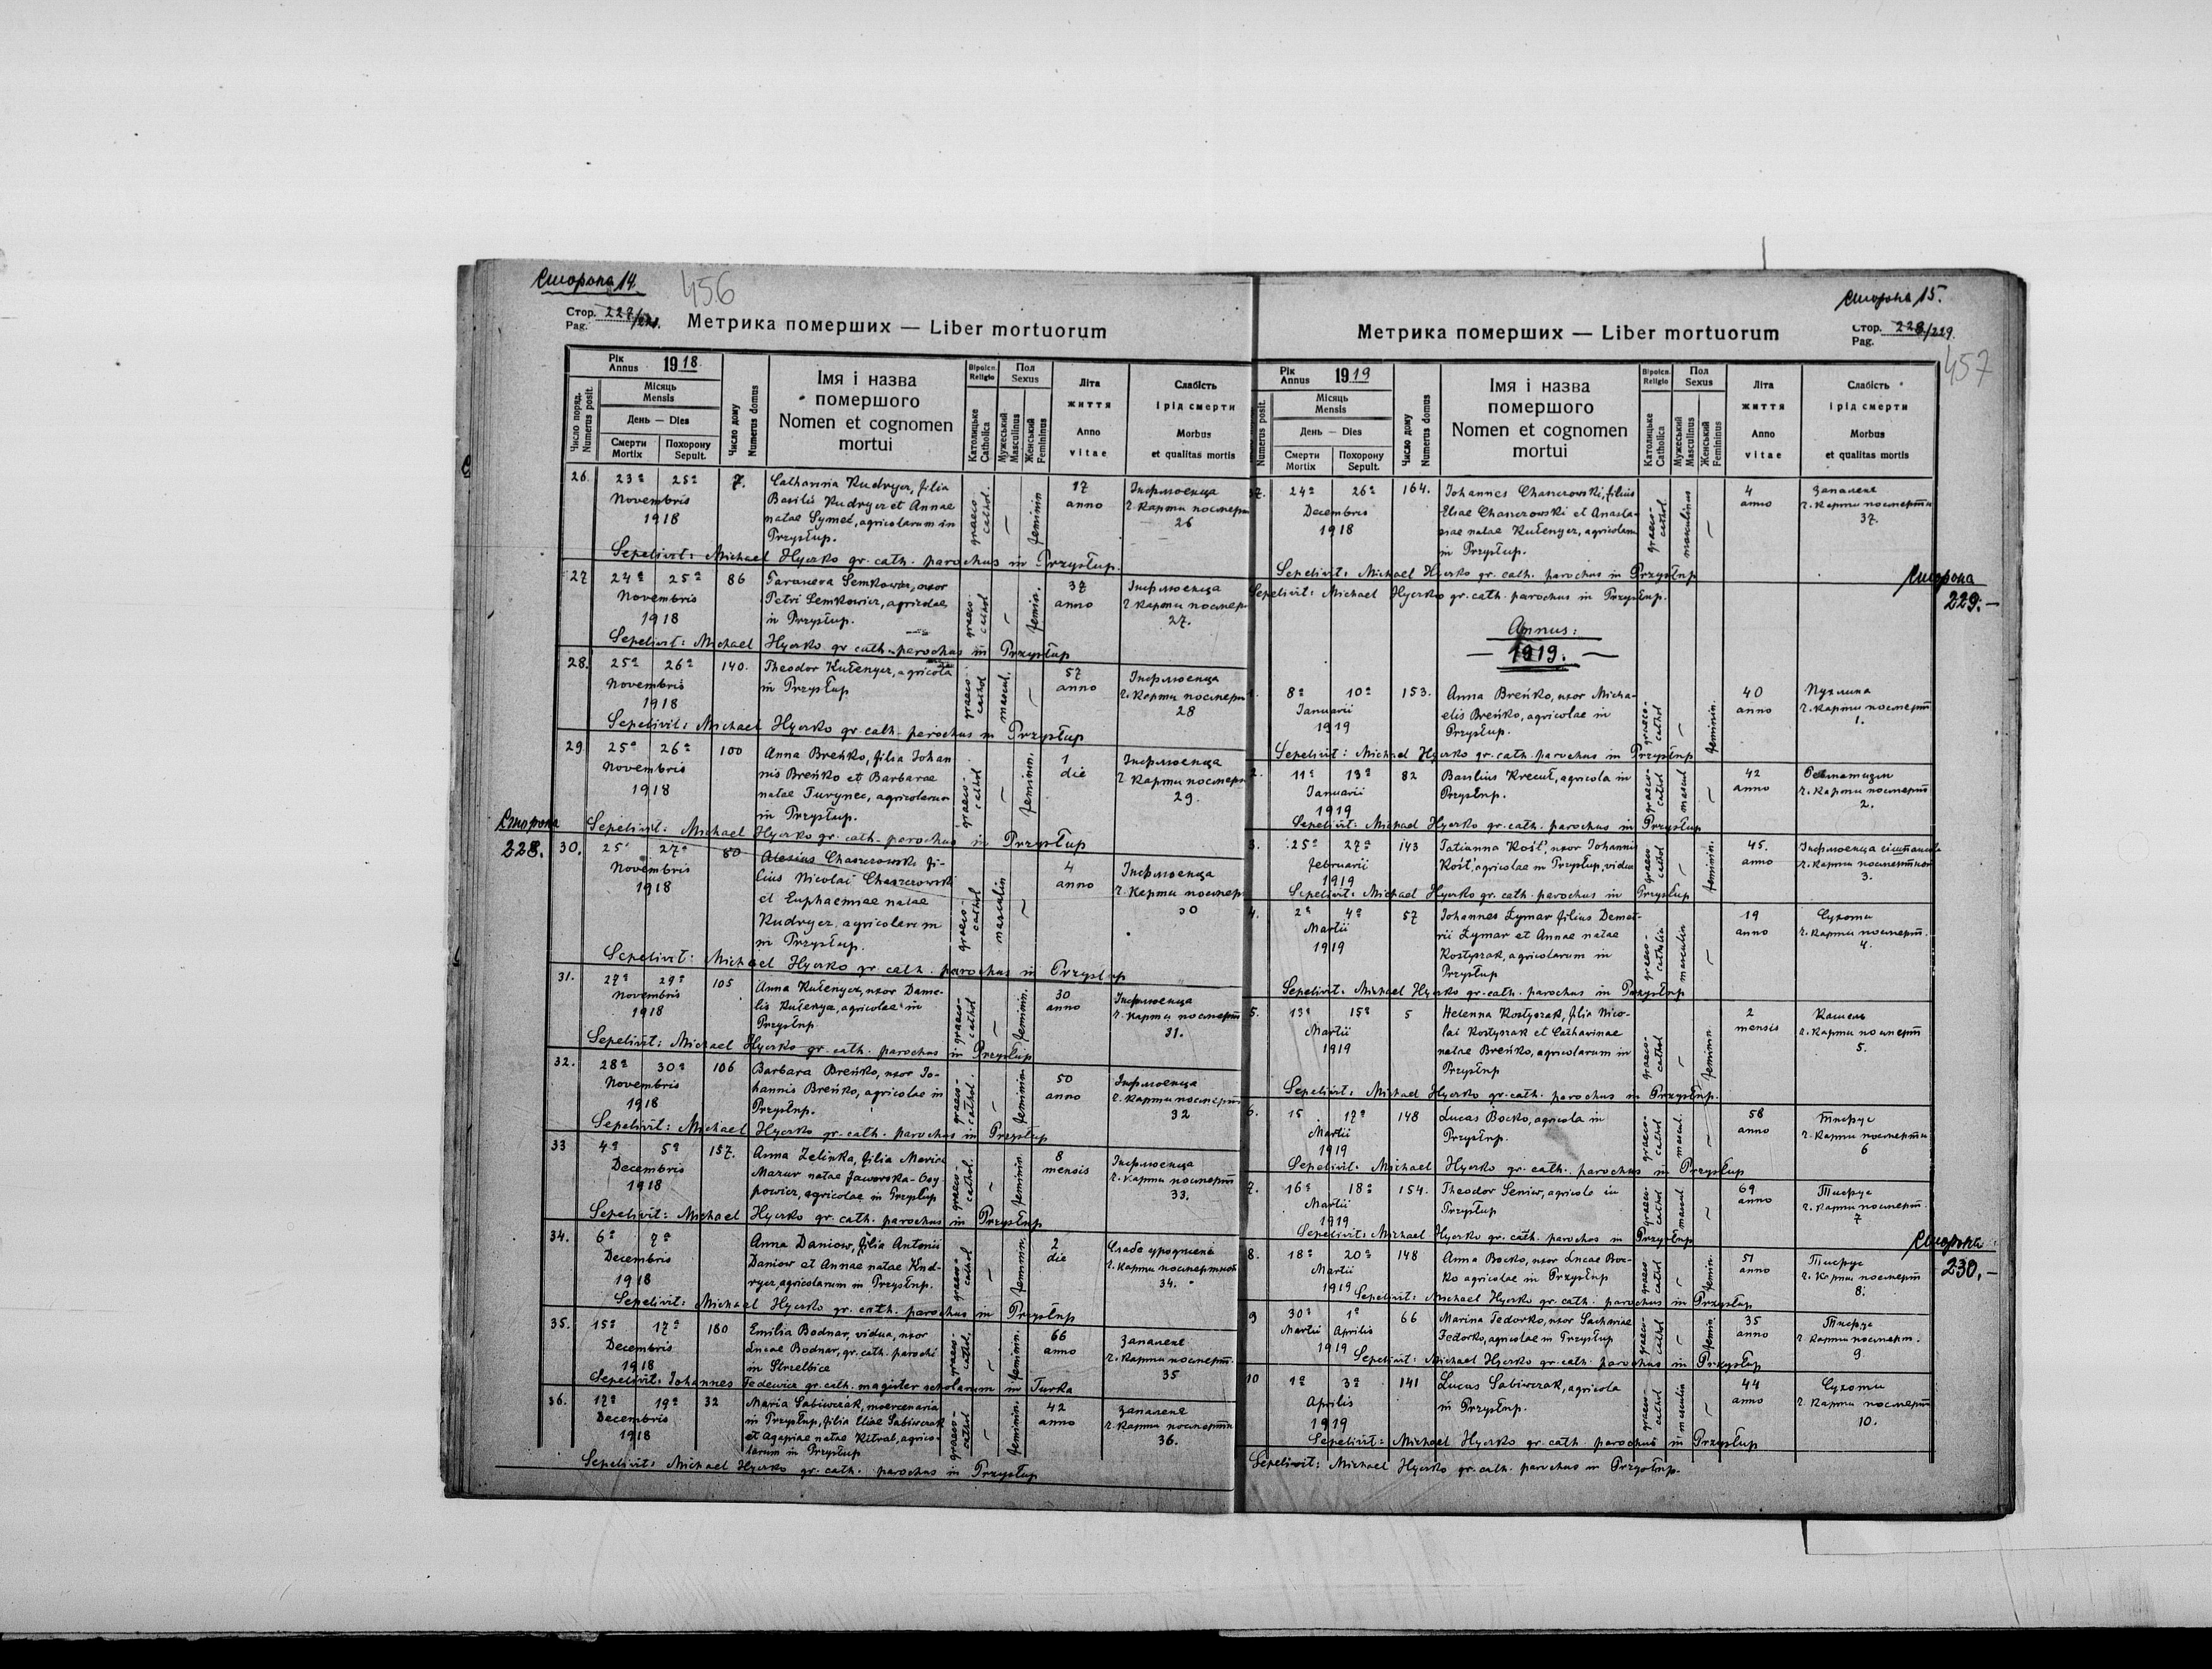 Сторона 14.
456
Стор. 227/228.
Pag.
Метрика померших — Liber mortuorum
Рік Annus 1918
Місяць Mensis
День — Dies
Число поряд. Numerus posit.
Смерти Mortix
Похорону Sepult.
Число дому Numerus domus
Імя і назва
помершого
Nomen et cognomen
mortui
Віроісп. Religio
Католицьке Catholica
Пол Sexus
Мужеський Masculinus
Женський Femininus
Літа
життя
Anno
vitae
Слабість
і рід смерти
Morbus
et qualitas mortis
26. 23ª 25ª 7. Catharina Kudryez, filia graeco-cathol. — feminin 17 Інфлюенца
Novembris Basilii Kudryez et Annae anno Ч. карти посмерт
1918 natae Symec, agricolarum in 26
Przysłup.
Sepelivit: Michael Hyerko gr. cath. parochus in Przysłup.
27 24ª 25ª 86 Semkowicz, uxor graeco-cathol — femin. 37 Інфлюенца
Novembris Petri Semkowicz, agricolae anno Ч. карти посмер
1918 in Przysłup. 27.
Sepelivit: Michael Hyerko gr. cath. parochus in Przysłup
28. 25ª 26ª 140. Theodor Kułenycz, agricola graeco-cathol mascul. — 57 Інфлюенца
Novembris in Przysłup anno Ч. карти посмерт
1918 28
Sepelivit: Michael Hyerko gr. cath. parochus in Przysłup
29 25ª 26ª 100 Anna Breńko, filia Johan graeco-cathol — feminin. 1 Інфлюенца
Novembris nis Breńko et Barbarae die Ч. карти посмерт
1918 natae Turynec, agricolarum 29.
in Przysłup.
Sepelivit: Michael Hyerko gr. cath. parochus in Przysłup
Сторона
228.
30. 25ª 27ª 80 Alexius Chaszczowski fi- graeco-cathol masculin — 4 Інфлюенца
Novembris lius Nicolai Chaszczowski anno Ч. карти посмер
1918 et Euphaemiae natae 30
Kudryez, agricolarum
in Przysłup.
Sepelivit: Michael Hyerko gr. cath. parochus in Przysłup
31. 27ª 29ª 105 Anna Kułenycz, uxor Danie- graeco-cathol — feminin. 30 Інфлюенца
Novembris lis Kułenycz, agricolae in anno Ч. карти посмерт
1918 Przysłup 31.
Sepelivit: Michael Hyerko gr. cath. parochus in Przysłup
32. 28ª 30ª 106 Barbara Breńko, uxor Jo- graeco-cathol. — feminin. 50 Інфлюенца
Novembris hannis Breńko, agricolae in anno Ч. карти посмерт
1918 Przysłup. 32
Sepelivit: Michael Hyerko gr. cath. parochus in Przysłup
33 4ª 5ª 157. Anna Zelinka, filia Mariae graeco-cathol. — feminin. 8 Інфлюенца
Decembris Mazur natae Jaworska- mensis Ч. карти посмерт
1918 powicz, agricolae in Przysłup 33.
Sepelivit: Michael Hyerko gr. cath. parochus in Przysłup
34. 6ª 7ª Anna Daniow, filia Antonii graeco-cathol — feminin. 2 Слабо уроджене
Decembris Daniow et Annae natae Kud- die Ч. карти посмертної
1918 ryez, agricolarum in Przysłup. 34.
Sepelivit: Michael Hyerko gr. cath. parochus in Przysłup
35. 15ª 17ª 180 Emilia Bodnar, vidua, uxor graeco-cathol. — feminin. 66 Запаленє
Decembris Lucae Bodnar, gr. cath. parochi anno Ч. карти посмерт.
1918 in Strzelbice 35
Sepelivit: Johannes Fedewicz gr. cath. magister scholarum in Turka
36. 17ª 19ª 32 Maria Sabiwczak, moercenaria graeco-cathol — feminin. 42 Запаленє
Decembris in Przysłup, filia Eliae Sabiwczak anno Ч. карти посмертн
1918 et Agapiae natae Kitral, agrico- 36.
larum in Przysłup
Sepelivit: Michael Hyerko gr. cath. parochus in Przysłup
Сторона 15.
Метрика померших — Liber mortuorum
Стор. 228/229.
Pag.
457
Рік Annus 1919
Місяць Mensis
День — Dies
Numerus posit.
Смерти Mortix
Похорону Sepult.
Число дому Numerus domus
Імя і назва
помершого
Nomen et cognomen
mortui
Віроісп. Religio
Католицьке Catholica
Пол Sexus
Мужеський Masculinus
Женський Femininus
Літа
життя
Anno
vitae
Слабість
і рід смерти
Morbus
et qualitas mortis
37. 24ª 26ª 164. Johannes Chaszczowski, filius graeco-cathol. masculinus — 4 Запаленє
Decembris Eliae Chaszczowski et Anasta- anno Ч. карти посмертн
1918 siae natae Kułenycz, agricolarum 37.
in Przysłup.
Sepelivit: Michael Hyerko gr. cath. parochus in Przysłup
Sepelivit: Michael Hyerko gr. cath. parochus in Przysłup.
Сторона
229.—
Annus:
— 1919. —
1. 8ª 10ª 153. Anna Breńko, uxor Micha- graeco-cathol — feminin. 40 Пухлина
Januarii elis Breńko, agricolae in anno Ч. карти посмерт
1919 Przysłup. 1.
Sepelivit: Michael Hyerko gr. cath. parochus in Przysłup
2. 11ª 13ª 82 Basilius Krecuł, agricola in graeco-cathol mascul — 42
Januarii Przysłup. anno Ч. карти посмерт
1919 2.
Sepelivit: Michael Hyerko gr. cath. parochus in Przysłup
3. 25ª 27ª 143 Tatianna Kość, uxor Johannis graeco cathol — feminin. 45. Інфлюенца
Februarii Kość, agricolae in Przysłup, vidua anno Ч. карти посмертної
1919 3.
Sepelivit: Michael Hyerko gr. cath. parochus in Przysłup
4. 2ª 4ª 57 Johannes Łymar filius Demet- graeco-catholia masculin — 19 Сухоти
Martii rii Łymar et Annae natae anno Ч. карти посмерт.
1919 Kostyszak, agricolarum in 4.
Przysłup
Sepelivit: Michael Hyerko gr. cath. parochus in Przysłup
5. 13ª 15ª 5 Helenna Kostyszak, filia Nico- graeco-cathol — feminin 2 Кашель
Martii lai Kostyszak et Catharinae mensis Ч. карти посмерт
1919 natae Breńko, agricolarum in 5.
Przysłup
Sepelivit: Michael Hyerko gr. cath. parochus in Przysłup.
6. 15 17ª 148 Lucas Bocko, agricola in graeco-cathol mascul. — 58 Тифус
Martii Przysłup. anno Ч. карти посмертн
1919 6
Sepelivit: Michael Hyerko gr. cath. parochus in Przysłup
7. 16ª 18ª 154. Theodor Seniw, agricola in graeco-cathol mascul — 69 Тифус
Martii Przysłup anno Ч. карти посмерт.
1919 7
Sepelivit: Michael Hyerko gr. cath. parochus in Przysłup
Сторона
230.—
8. 18ª 20ª 148 Anna Bocko, uxor Lucae Boc- graeco cathol — femin. 51 Тифус
Martii ko agricolae in Przysłup anno Ч. карти посмерт
1919 8.
Sepelivit: Michael Hyerko gr. cath. parochus in Przysłup
9 30ª 1ª 66 Marina Fedorko, uxor Zachariae graeco-cathol — femin. 35 Тифус
Martii Aprilis Fedorko, agricolae in Przysłup anno Ч карти посмерт.
1919 9
Sepelivit: Michael Hyerko gr. cath. parochus in Przysłup
10 1ª 3ª 141 Lucas Sabiwczak, agricola graeco-cathol masculin — 44 Сухоти
Aprilis in Przysłup. anno Ч. карти посмерт
1919 10.
Sepelivit: Michael Hyerko gr. cath. parochus in Przysłup
Sepelivit: Michael Hyerko gr. cath. parochus in Przysłup.